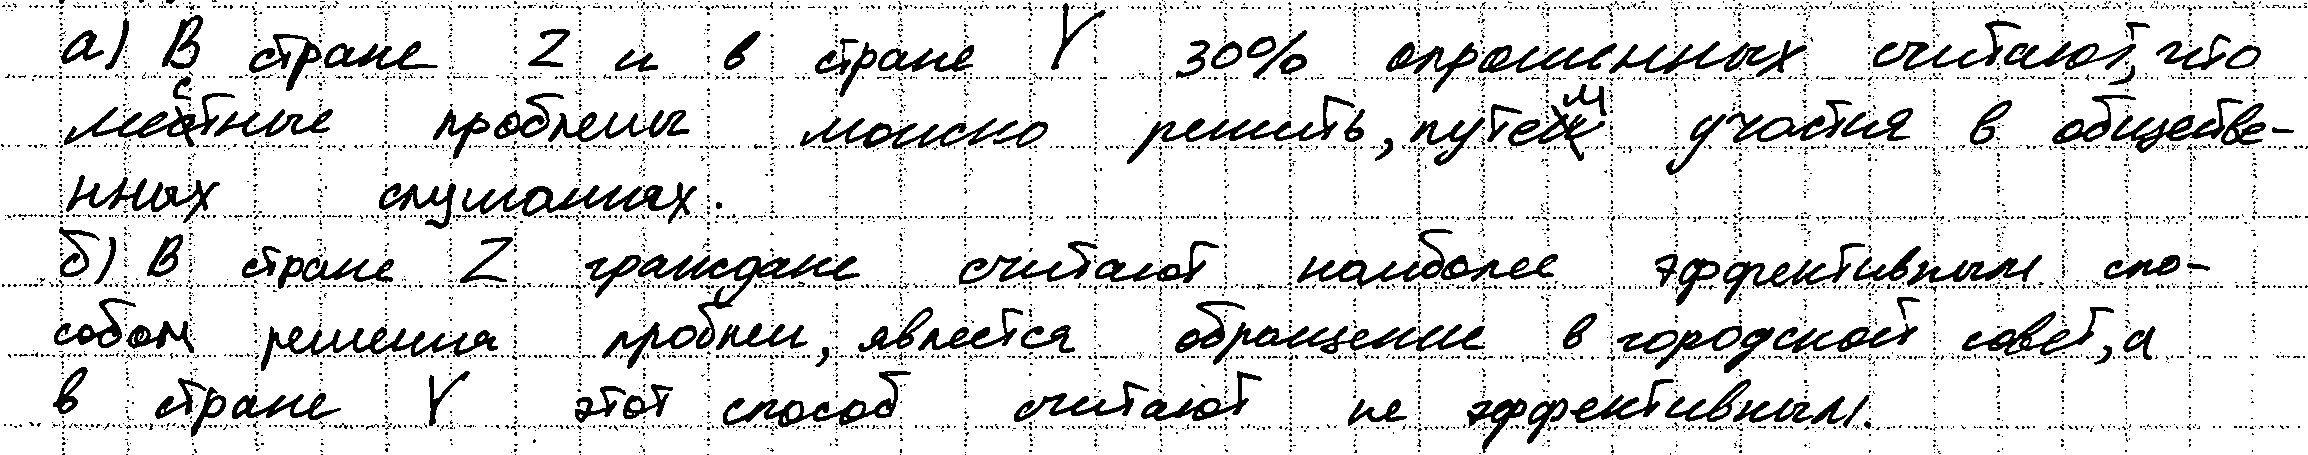 а) В стране Z и в стране Y 30% опрошенных считают, что
местные проблемы можно решить, путем участия в обществе-
нных слушаниях.
б) В стране Z граждане считают наиболее эффективным спо-
собом решения проблем, является обращение в городской совет, а
в стране Y этот способ считают не эффективным.